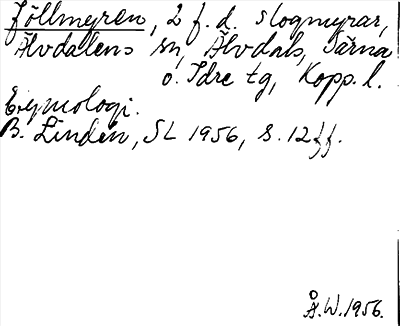 Föllmyren, 2 f.d. slogmyrar,
Älvdalens sn, Älvdals, Särna
o. Idre tg, Kopp. l.
Etymologi.
B. Lindén, SL 1956, s. 12 ff.
Å.W. 1956.